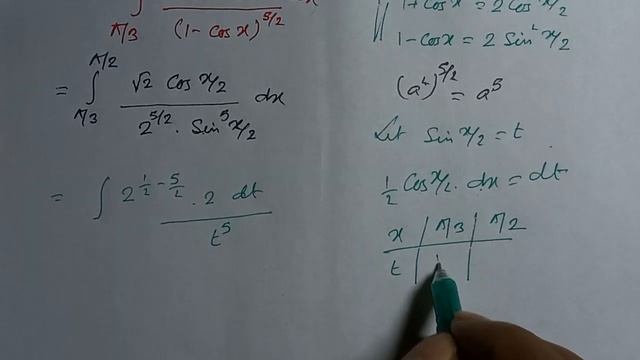 ∫ π/3 (1 - Cosx)^5/2
= ∫ π/3 π/2 √2 Cos x/2 / 2^5/2 . Sin^5 x/2 dx
= ∫ 2^(1/2 - 5/2) . 2 dt / t^5
1+Cosx = 2Cos² x/2
1-Cosx = 2 Sin² x/2
(a²)^5/2 = a^5
Let Sin x/2 = t
1/2 Cos x/2 . dx = dt
x | π/3 | π/2
t |